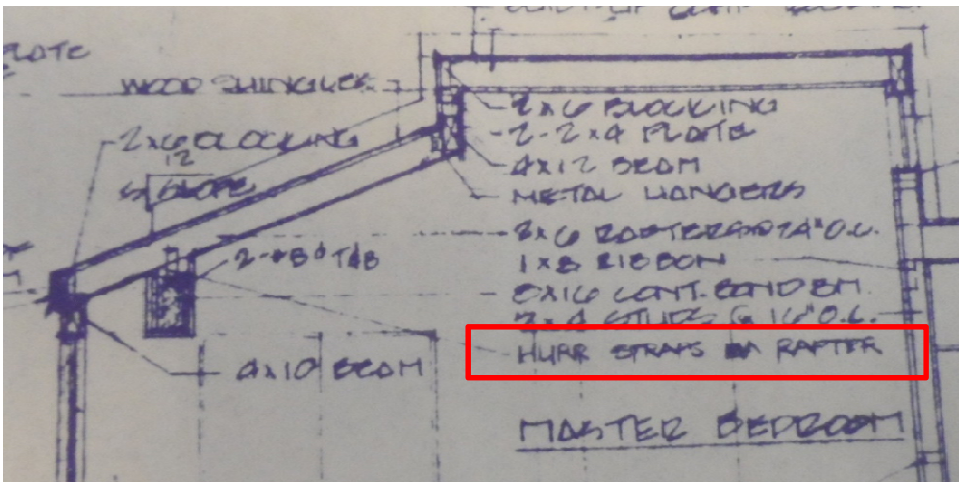 PLATE
WOOD SHINGLES
2X6 BLOCKING
12
5 SLOPE
2X6 BLOCKING
2-2X4 PLATE
4X12 BEAM
METAL HANGERS
2X6 RAFTERS @ 24" O.C.
1X8 RIBBON
8X16 CONT. BOND BM.
2X4 STUDS @ 16" O.C.
HURR STRAPS RAFTER
2-#5 T&B
4X10 BEAM
MASTER BEDROOM